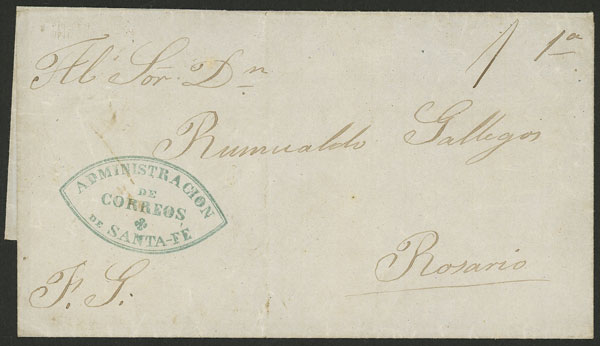 1 1ª
Al Sor. Dn
Rumualdo Gallegos
ADMINISTRACION
DE
CORREOS
DE SANTA-FÉ
Rosario
F. G.